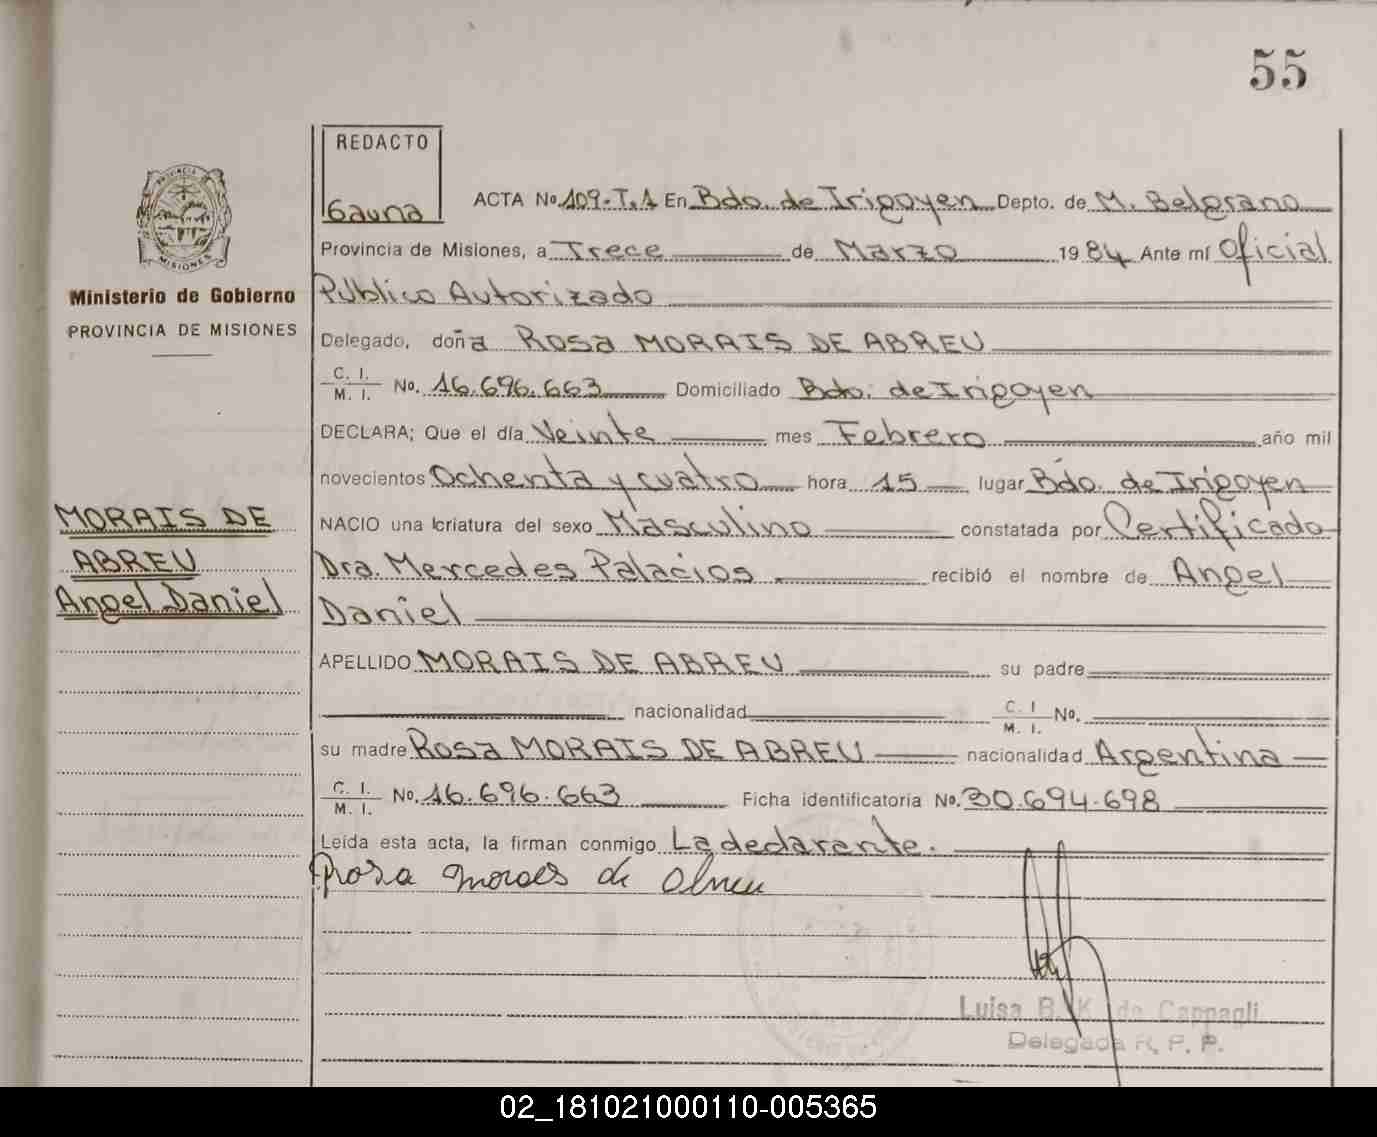 55
REDACTO
Gauna
PROVINCIA DE MISIONES
Ministerio de Gobierno
PROVINCIA DE MISIONES
MORAIS DE
ABREU
Angel Daniel
ACTA No. 109-T.1 En Bdo. de Irigoyen Depto. de M. Belgrano
Provincia de Misiones, a Trece de Marzo 1984 Ante mí Oficial
Público Autorizado
Delegado, doña Rosa MORAIS DE ABREU
C. I. / M. I. No. 16.696.663 Domiciliado Bdo. de Irigoyen
DECLARA; Que el día Veinte mes Febrero año mil
novecientos Ochenta y cuatro hora 15 lugar Bdo. de Irigoyen
NACIO una criatura del sexo Masculino constatada por Certificado
Dra. Mercedes Palacios recibió el nombre de Angel
Daniel
APELLIDO MORAIS DE ABREU su padre
nacionalidad C. I / M. I. No.
su madre Rosa MORAIS DE ABREU nacionalidad Argentina
C. I. / M. I. No. 16.696.663 Ficha identificatoria No. 30.694.698
Leída esta acta, la firman conmigo La declarante.
Rosa moraes de
Luisa B. K. de Cappagli
Delegada R. P. P.
02_181021000110-005365